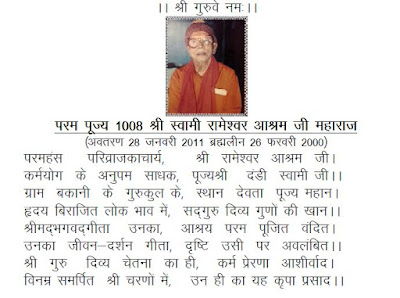 ।। श्री गुरुवे नमः।।
परम पूज्य 1008 श्री स्वामी रामेश्वर आश्रम जी महाराज
(अवतरण 28 जनवरी 2011 ब्रह्मलीन 26 फरवरी 2000)
परमहंस परिव्राजकाचार्य, श्री रामेश्वर आश्रम जी।
कर्मयोग के अनुपम साधक, पूज्यश्री दंडी स्वामी जी।।
ग्राम बकानी के गुरुकुल के, स्थान देवता पूज्य महान।
हृदय बिराजित लोक भाव में, सद्गुरु दिव्य गुणों की खान।।
श्रीमद्भगवद्गीता उनका, आश्रय परम पूजित वंदित।
उनका जीवन-दर्शन गीता, दृष्टि उसी पर अवलंबित।।
श्री गुरु दिव्य चेतना का ही, कर्म प्रेरणा आशीर्वाद।
विनम्र समर्पित श्री चरणों में, उन ही का यह कृपा प्रसाद।।